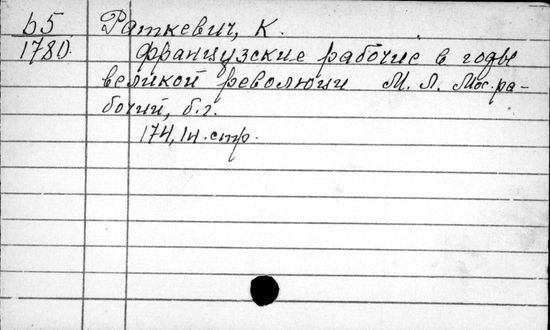 b5
Раткевич, К.
1780.
Французские рабочие в годы
великой революции М. Л. Мос. ра-
бочий, б. г.
174, 1н. стр.